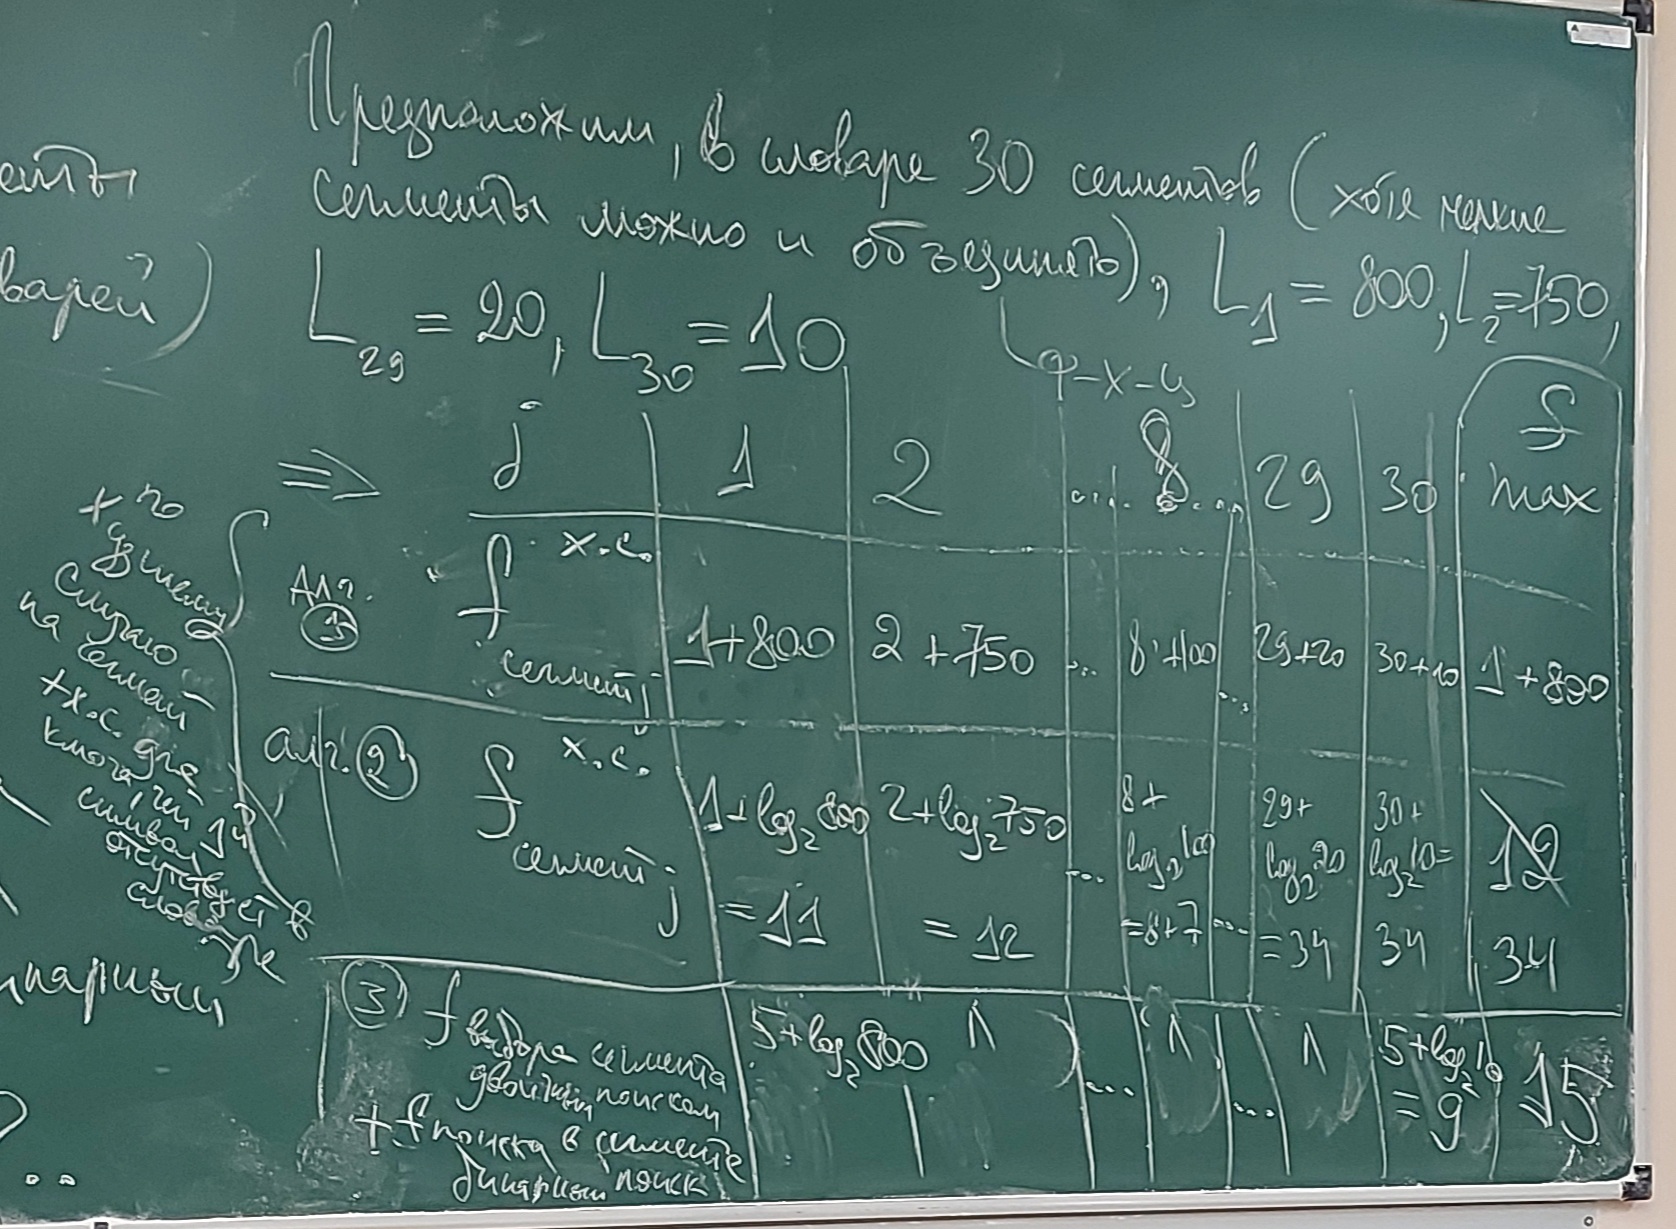 Предположим, в словаре 30 сегментов (хотя мелкие
сегменты можно и объединять), L₁ = 800, L₂ = 750,
L₂₉ = 20, L₃₀ = 10
ф-х-ц
варей)
=> j 1 2 .... 8 .... 29 30 f max
Алг. ① f х.с. сегмент j 1+800 2+750 ... 8+100 ... 29+20 30+10 1+800
алг. ② f х.с. сегмент j 1+log₂800 = 11 2+log₂750 = 12 ... 8+log₂100 = 8+7 ... 29+log₂20 = 34 30+log₂10 = 34 12 34
③ f выбора сегмента
двоичным поиском
+ f поиска в сегменте
бинарный поиск
5+log₂800 ... ... 5+log₂10 = 9 15
+ по
одному
случаю
на сегмент
+ х.с. для
ключа, чей 1й
символ
отсутствует в
словаре